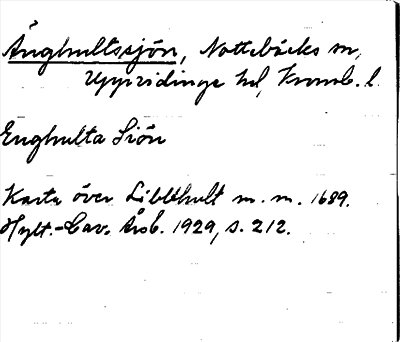 Änghultssjön, Nottebäcks sn,
Uppvidinge hd, Kronob. l.
Enghulta Siön
Karta över Libbhult m. m. 1689.
Hylt.-Cav. Årsb. 1929, s. 212.